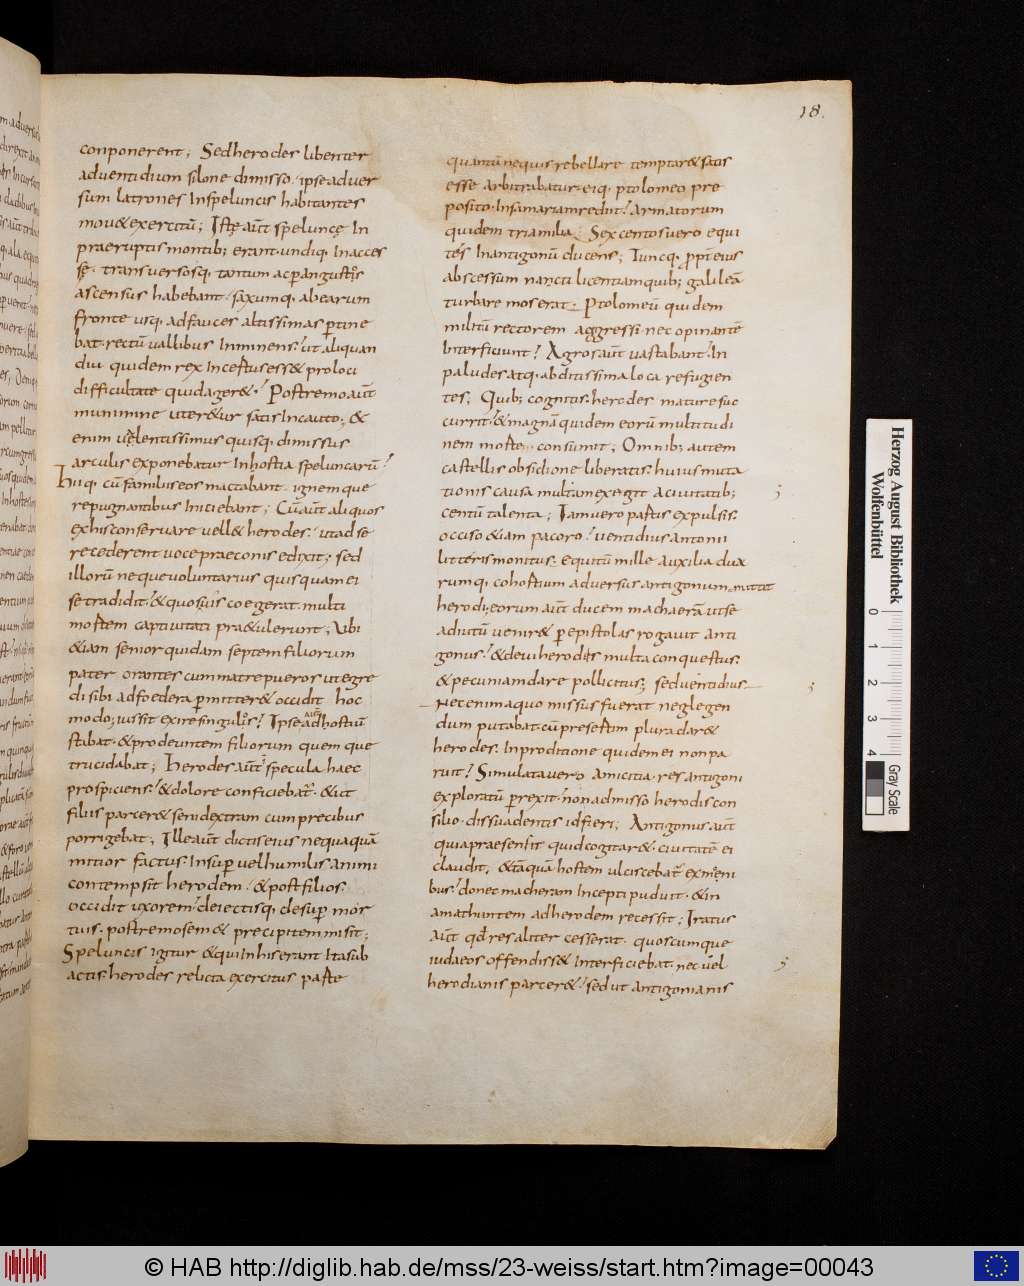 18.
conponerent; Sed herodes libenter
adventidium silone dimisso. ipse adver
sum latrones Inspeluncis habitantes
mou& exercitū; Iste aūt speluncę In
praeruptis montib; erant. undiq, Inacces
sę. transversosq, tantum ac pangustos
ascensus habebant. saxumq, abearum
fronte usq, adfauces altissimas ptine
bat. rectū vallibus Inminens. ut aliquan
diu quidem rex Inceptus ess& pro loci
difficultate quid ager&. Postremo aūt
munimine uter&ur satis Incauto; &
enim valentissimus quisq, dimissus
arculis exponebatur Inhostia speluncarū
hiiq, cū familiis eos mactabant. ignem que
repugnantibus Iniciebant; Cū aūt aliquos
ex his conservare vell& herodes. ut ad se
recederent voce praeconis edixit; sed
illorū neque voluntarius quisquam ei
se tradidit. & quos uis coegerat. multi
mortem captivitati pra&ulerunt; Vbi
&iam senior quidam septem filiorum
pater orantes cum matre pueros ut egre
di sibi adfoedera pmitter& occidit hoc
modo; iussit exire singulos. Ipse aūt adhostiū
stabat. & prodeuntem filiorum quem que
trucidabat; herodes aūt specula haec
prospiciens. & dolore conficiebat. & ut
filiis parcer& seni dextram cum precibus
porrigebat; Ille aūt dictis eius nequaquā
mitior factus. Insup vel humilis animi
contempsit herodem. & post filios.
occidit uxorem. deiectisq, desup mor
tuis. postremo sem& precipitem misit;
Speluncis igitur & qui Inhis erant Ita sub
actis. herodes relicta exercitus parte
quantū nequis rebellare temptar& satis
esse arbitrabatur. eiq, ptolomeo pre
posito. Insamariam rediit. Armatorum
quidem tria milia. Sexcentos vero equi
tes Inantigonū ducens; Tuncq, ppt eius
abscessum nancti licentiam quib; galileā
turbare mos erat. Ptolomeū quidem
militū rectorem aggressi. nec opinantē
Interficiunt. Agros aūt vastabant. In
paludes atq, abditissima loca refugien
tes; Quib; cognitus. herodes mature suc
currit. & magnā quidem eorū multitudi
nem morte consumit; Omnib; autem
castellis obsidione liberatis. huius muta
tionis causa multam exegit a civitatib;
centū talenta; Iam vero partus expulsis.
occiso &iam pacoro. uentidius antonii
litteris monitus. equitū mille auxilia dua
rumq, cohortium adversus antigonum mittit
herodi. eorum aūt ducem machaerā ut se
adiutū venir& p epistolas rogavit anti
gonus. & de vi herodes multa conquestus.
& pecuniam dare pollicitus; sed uentidius
Nec enim a quo missus fuerat neglegen
dum putabat. cū presertim plura dar&
herodes. Inproditione quidem ei non pa
ruit. Simulata vero amicitia. res antigoni
exploratū prexit. non admisso herodis con
silio. dissuadentis id fieri; Antigonus aūt
quia praesensit quid cogitar&. civitatē ei
claudit. & tāquā hostem ulciscebat ex męni
bus. donec macheram Incepti puduit. & in
amathuntem ad herodem recessit; Iratus
aūt qđ res aliter cesserat. quoscumque
iudaeos offendiss& Interficiebat. nec vel
herodianis parcer&. sed ut antigonianis
Herzog August Bibliothek
Wolfenbüttel
0 1 2 3 4
Gray Scale
© HAB http://diglib.hab.de/mss/23-weiss/start.htm?image=00043